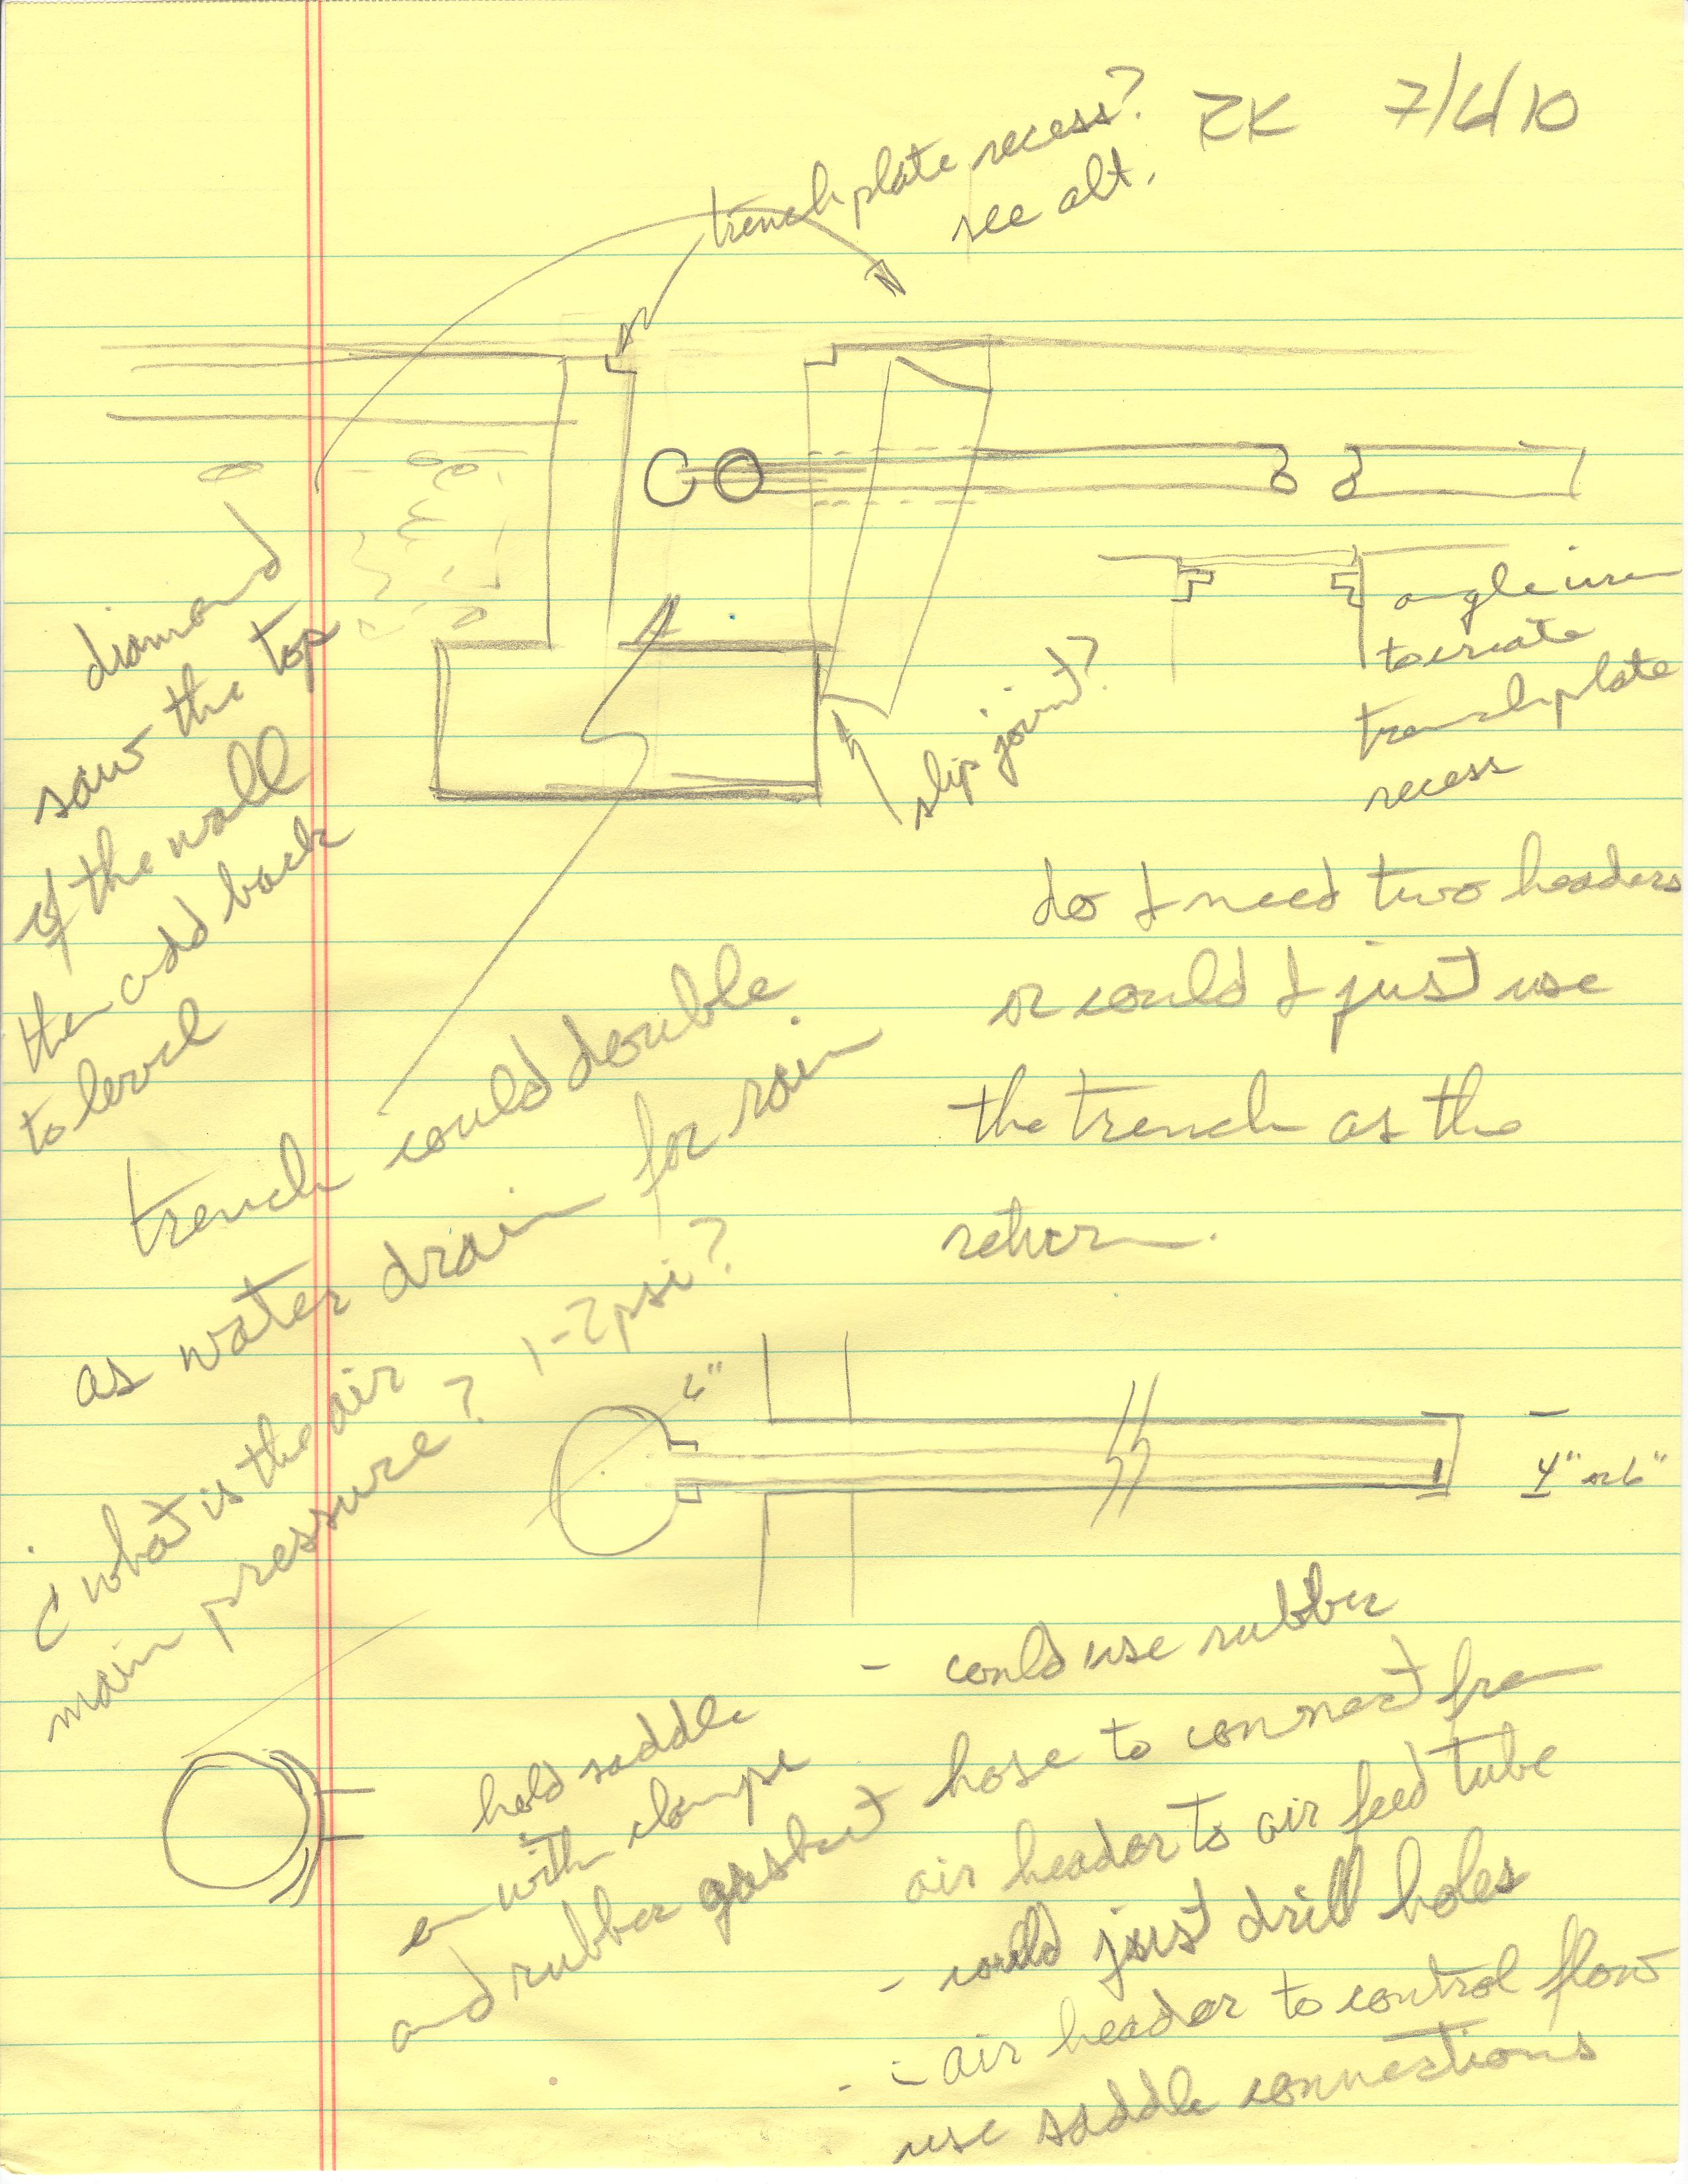 RK 7/6/10
trench plate recess?
see alt.
diamond
saw the top
of the wall
then add back
to level
slip joint?
angle iron
to create
trench plate
recess
do I need two headers
or could I just use
the trench as the
return.
trench could double
as water drain for rain
¿ what is the air
main pressure? 1-2 psi?
6"
4" or 6"
hold saddle
on with clamps
and rubber gasket
- could use rubber
hose to connect from
air header to air feed tube
- could just drill holes
in air header to control flow
- use saddle connections